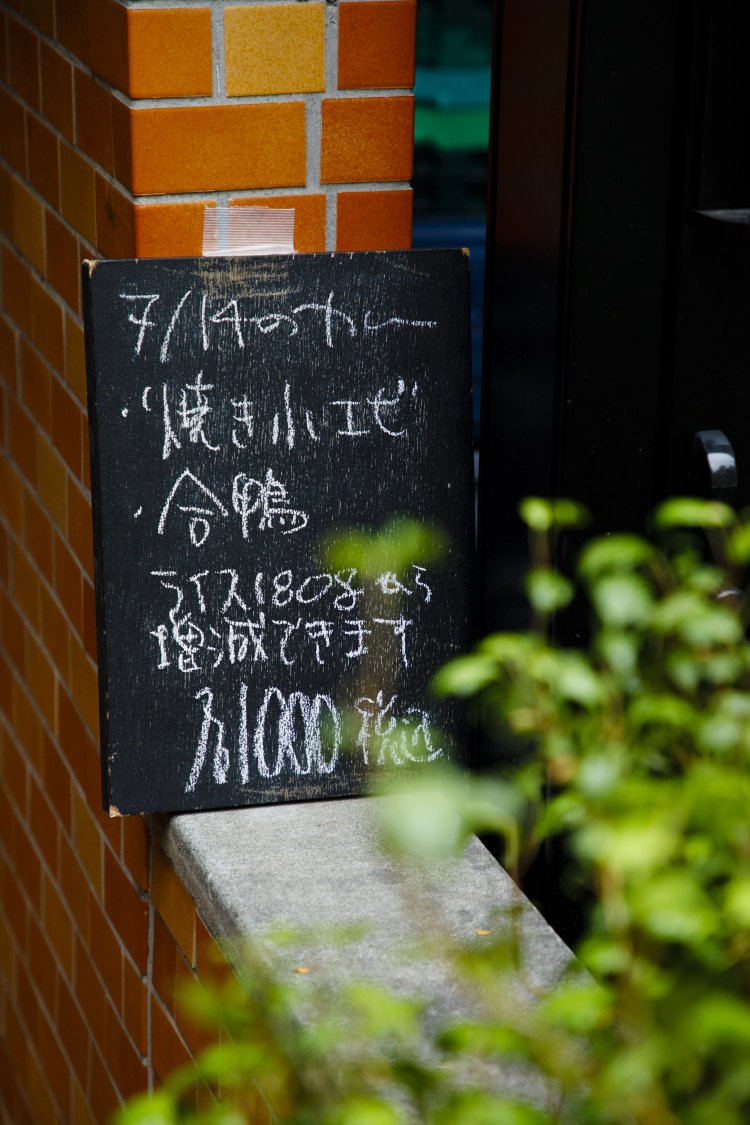 7/14のカレー
・"焼き小エビ"
・合鴨
ライス180gから
増減できます
各1000税込